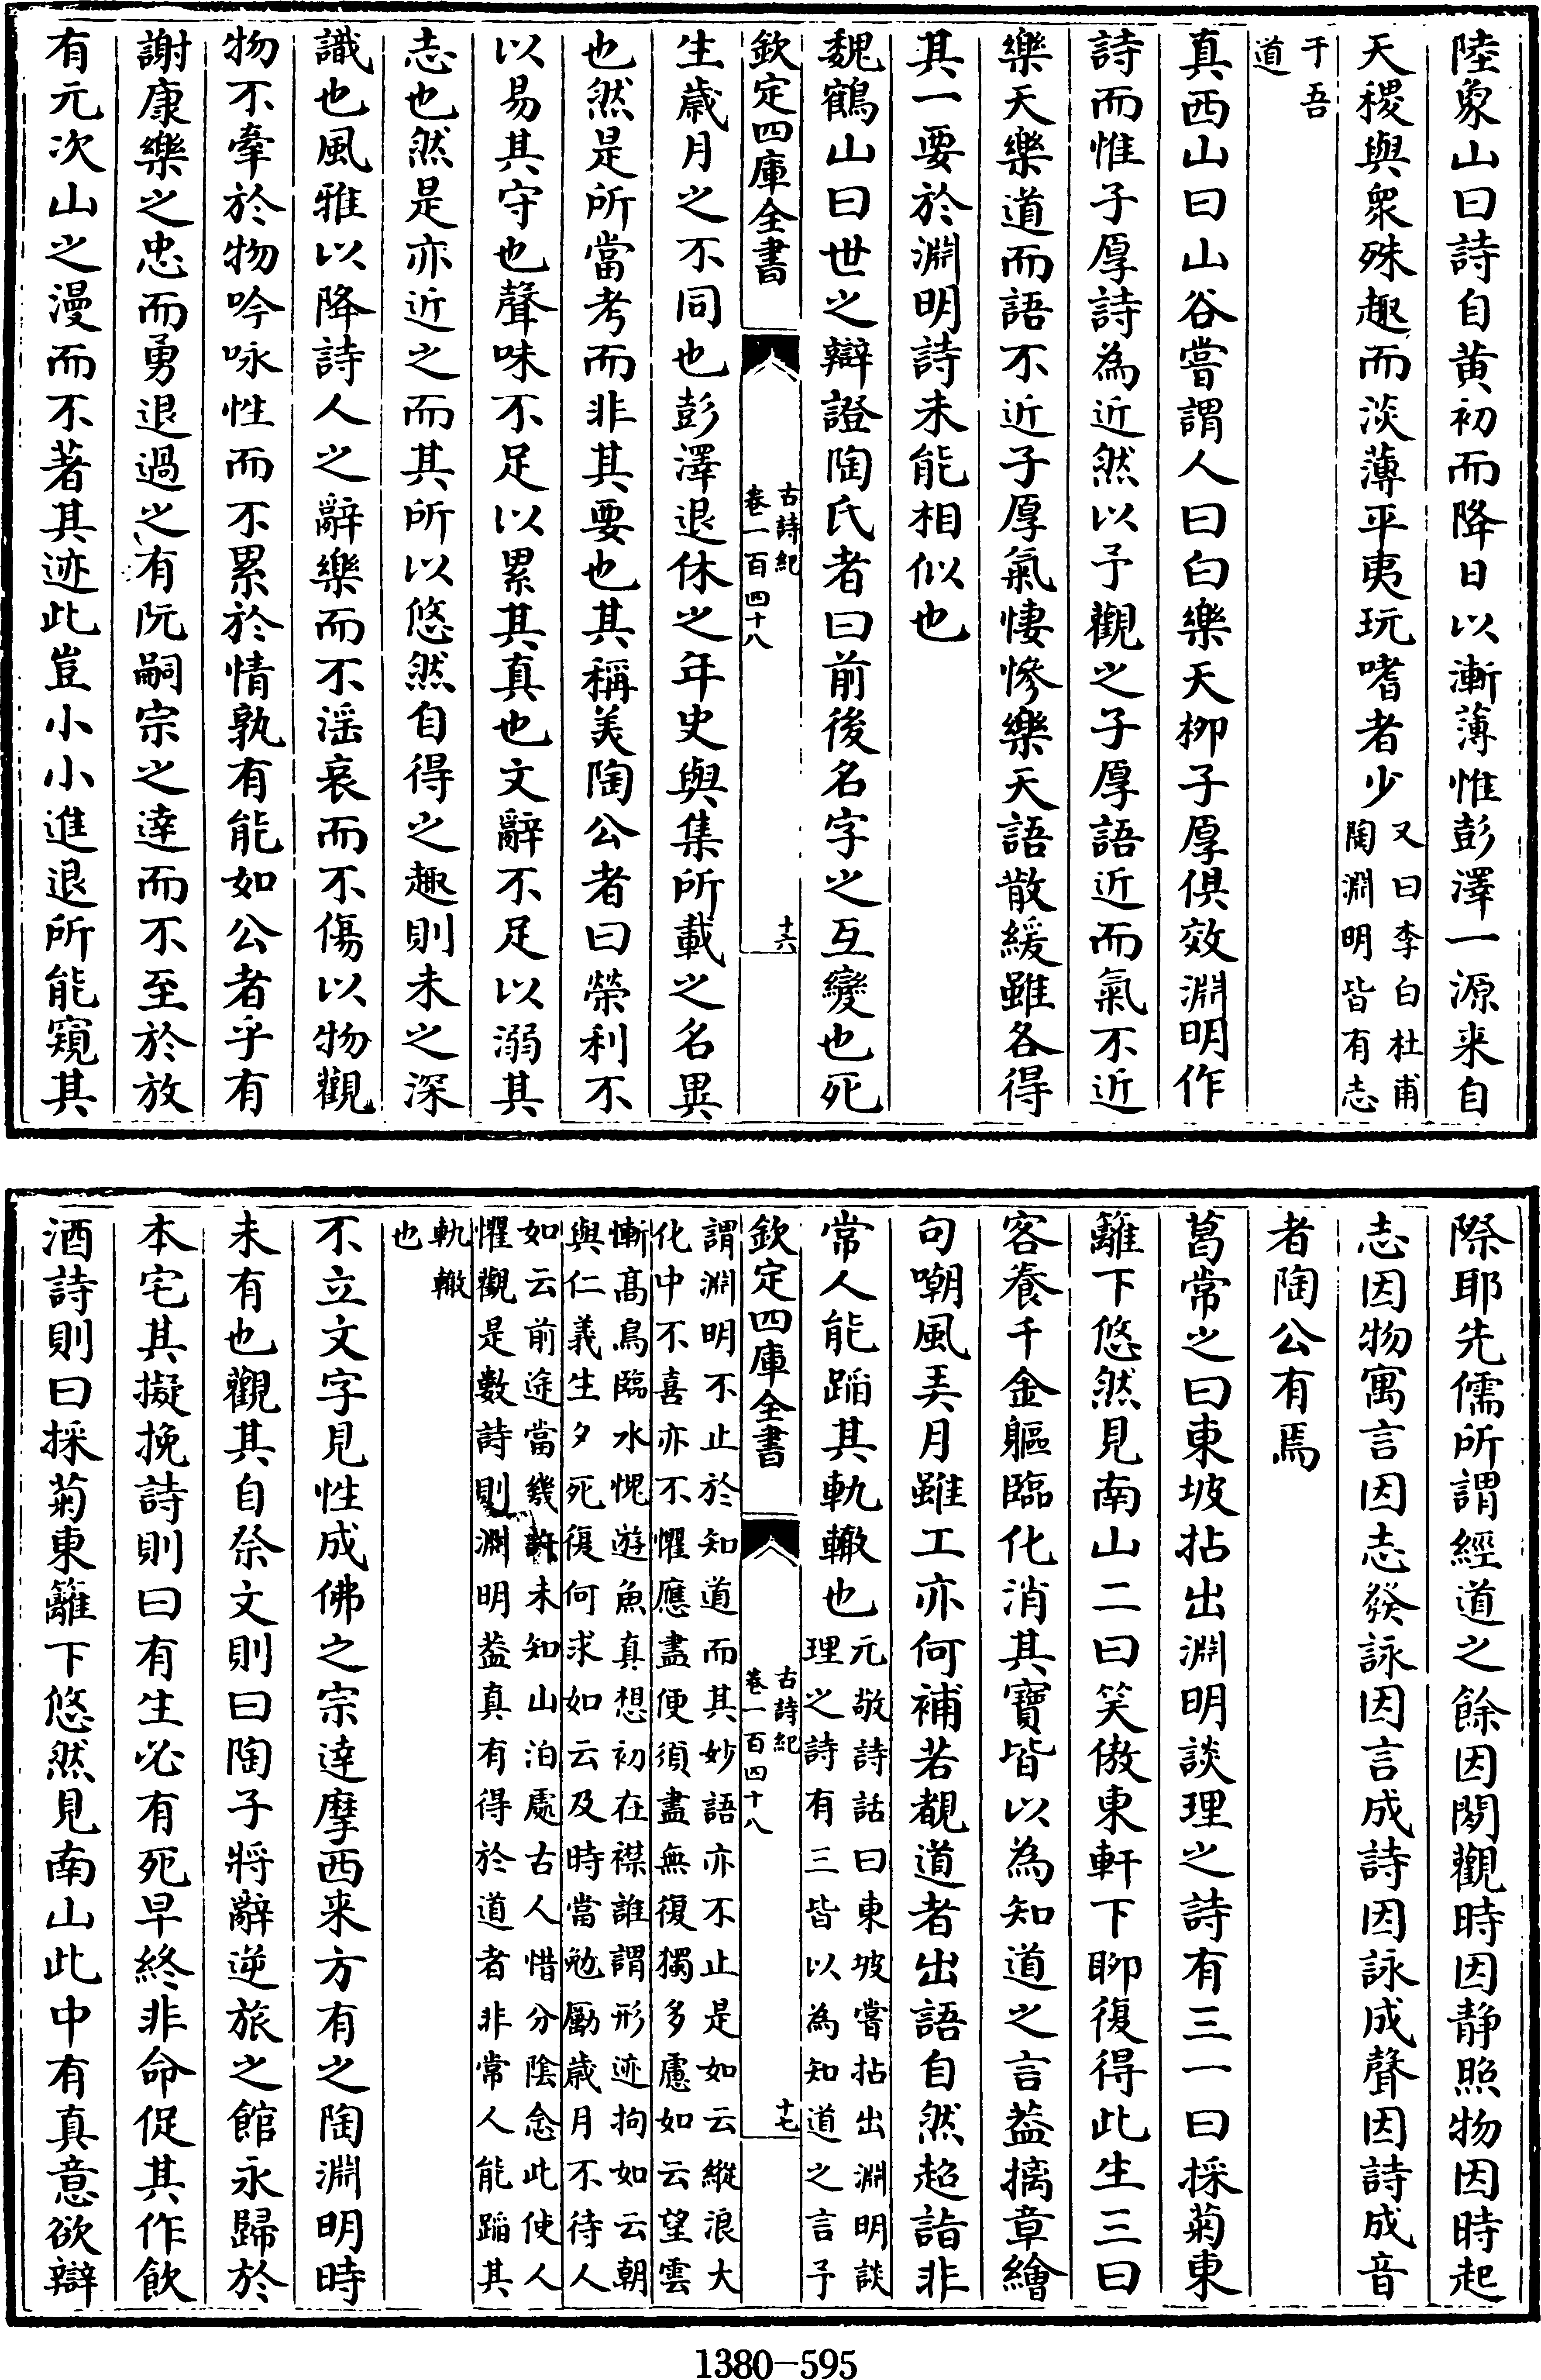 陸象山曰詩自黄初而降日以漸薄惟彭澤一源来自
天稷與衆殊趣而淡薄平夷玩嗜者少又曰李白杜甫陶淵明皆有志
于吾道
真西山曰山谷嘗謂人曰白樂天柳子厚俱效淵明作
詩而惟子厚詩為近然以予觀之子厚語近而氣不近
樂天樂道而語不近子厚氣悽慘樂天語散緩雖各得
其一要於淵明詩未能相似也
魏鶴山曰世之辯證陶氏者曰前後名字之互變也死
欽定四庫全書 古詩紀卷一百四十八 十六
生歲月之不同也彭澤退休之年史與集所載之名異
也然是所當考而非其要也其稱美陶公者曰榮利不
以易其守也聲味不足以累其真也文辭不足以溺其
志也然是亦近之而其所以悠然自得之趣則未之深
識也風雅以降詩人之辭樂而不滛哀而不傷以物觀
物不牽於物吟咏性而不累於情孰有能如公者乎有
謝康樂之忠而勇退過之有阮嗣宗之達而不至於放
有元次山之漫而不著其迹此豈小小進退所能窺其
際耶先儒所謂經道之餘因閒觀時因静照物因時起
志因物寓言因志發詠因言成詩因詠成聲因詩成音
者陶公有焉
葛常之曰東坡拈出淵明談理之詩有三一曰採菊東
籬下悠然見南山二曰笑傲東軒下聊復得此生三曰
客養千金軀臨化消其寶皆以為知道之言葢摛章繪
句嘲風弄月雖工亦何補若覩道者出語自然超詣非
常人能蹈其軌轍也元敬詩話曰東坡嘗拈出淵明談理之詩有三皆以為知道之言予
欽定四庫全書 古詩紀卷一百四十八 十七
謂淵明不止於知道而其妙語亦不止是如云縱浪大化中不喜亦不懼應盡便須盡無復獨多慮如云望雲
慚髙鳥臨水愧遊魚真想初在襟誰謂形迹拘如云朝與仁義生夕死復何求如云及時當勉勵歲月不待人
如云前途當幾許未知山泊處古人惜分陰念此使人懼觀是數詩則淵明葢真有得於道者非常人能蹈其
軌轍也
不立文字見性成佛之宗達摩西来方有之陶淵明時
未有也觀其自祭文則曰陶子將辭逆旅之館永歸於
本宅其擬挽詩則曰有生必有死早終非命促其作飲
酒詩則曰採菊東籬下悠然見南山此中有真意欲辯
1380-595